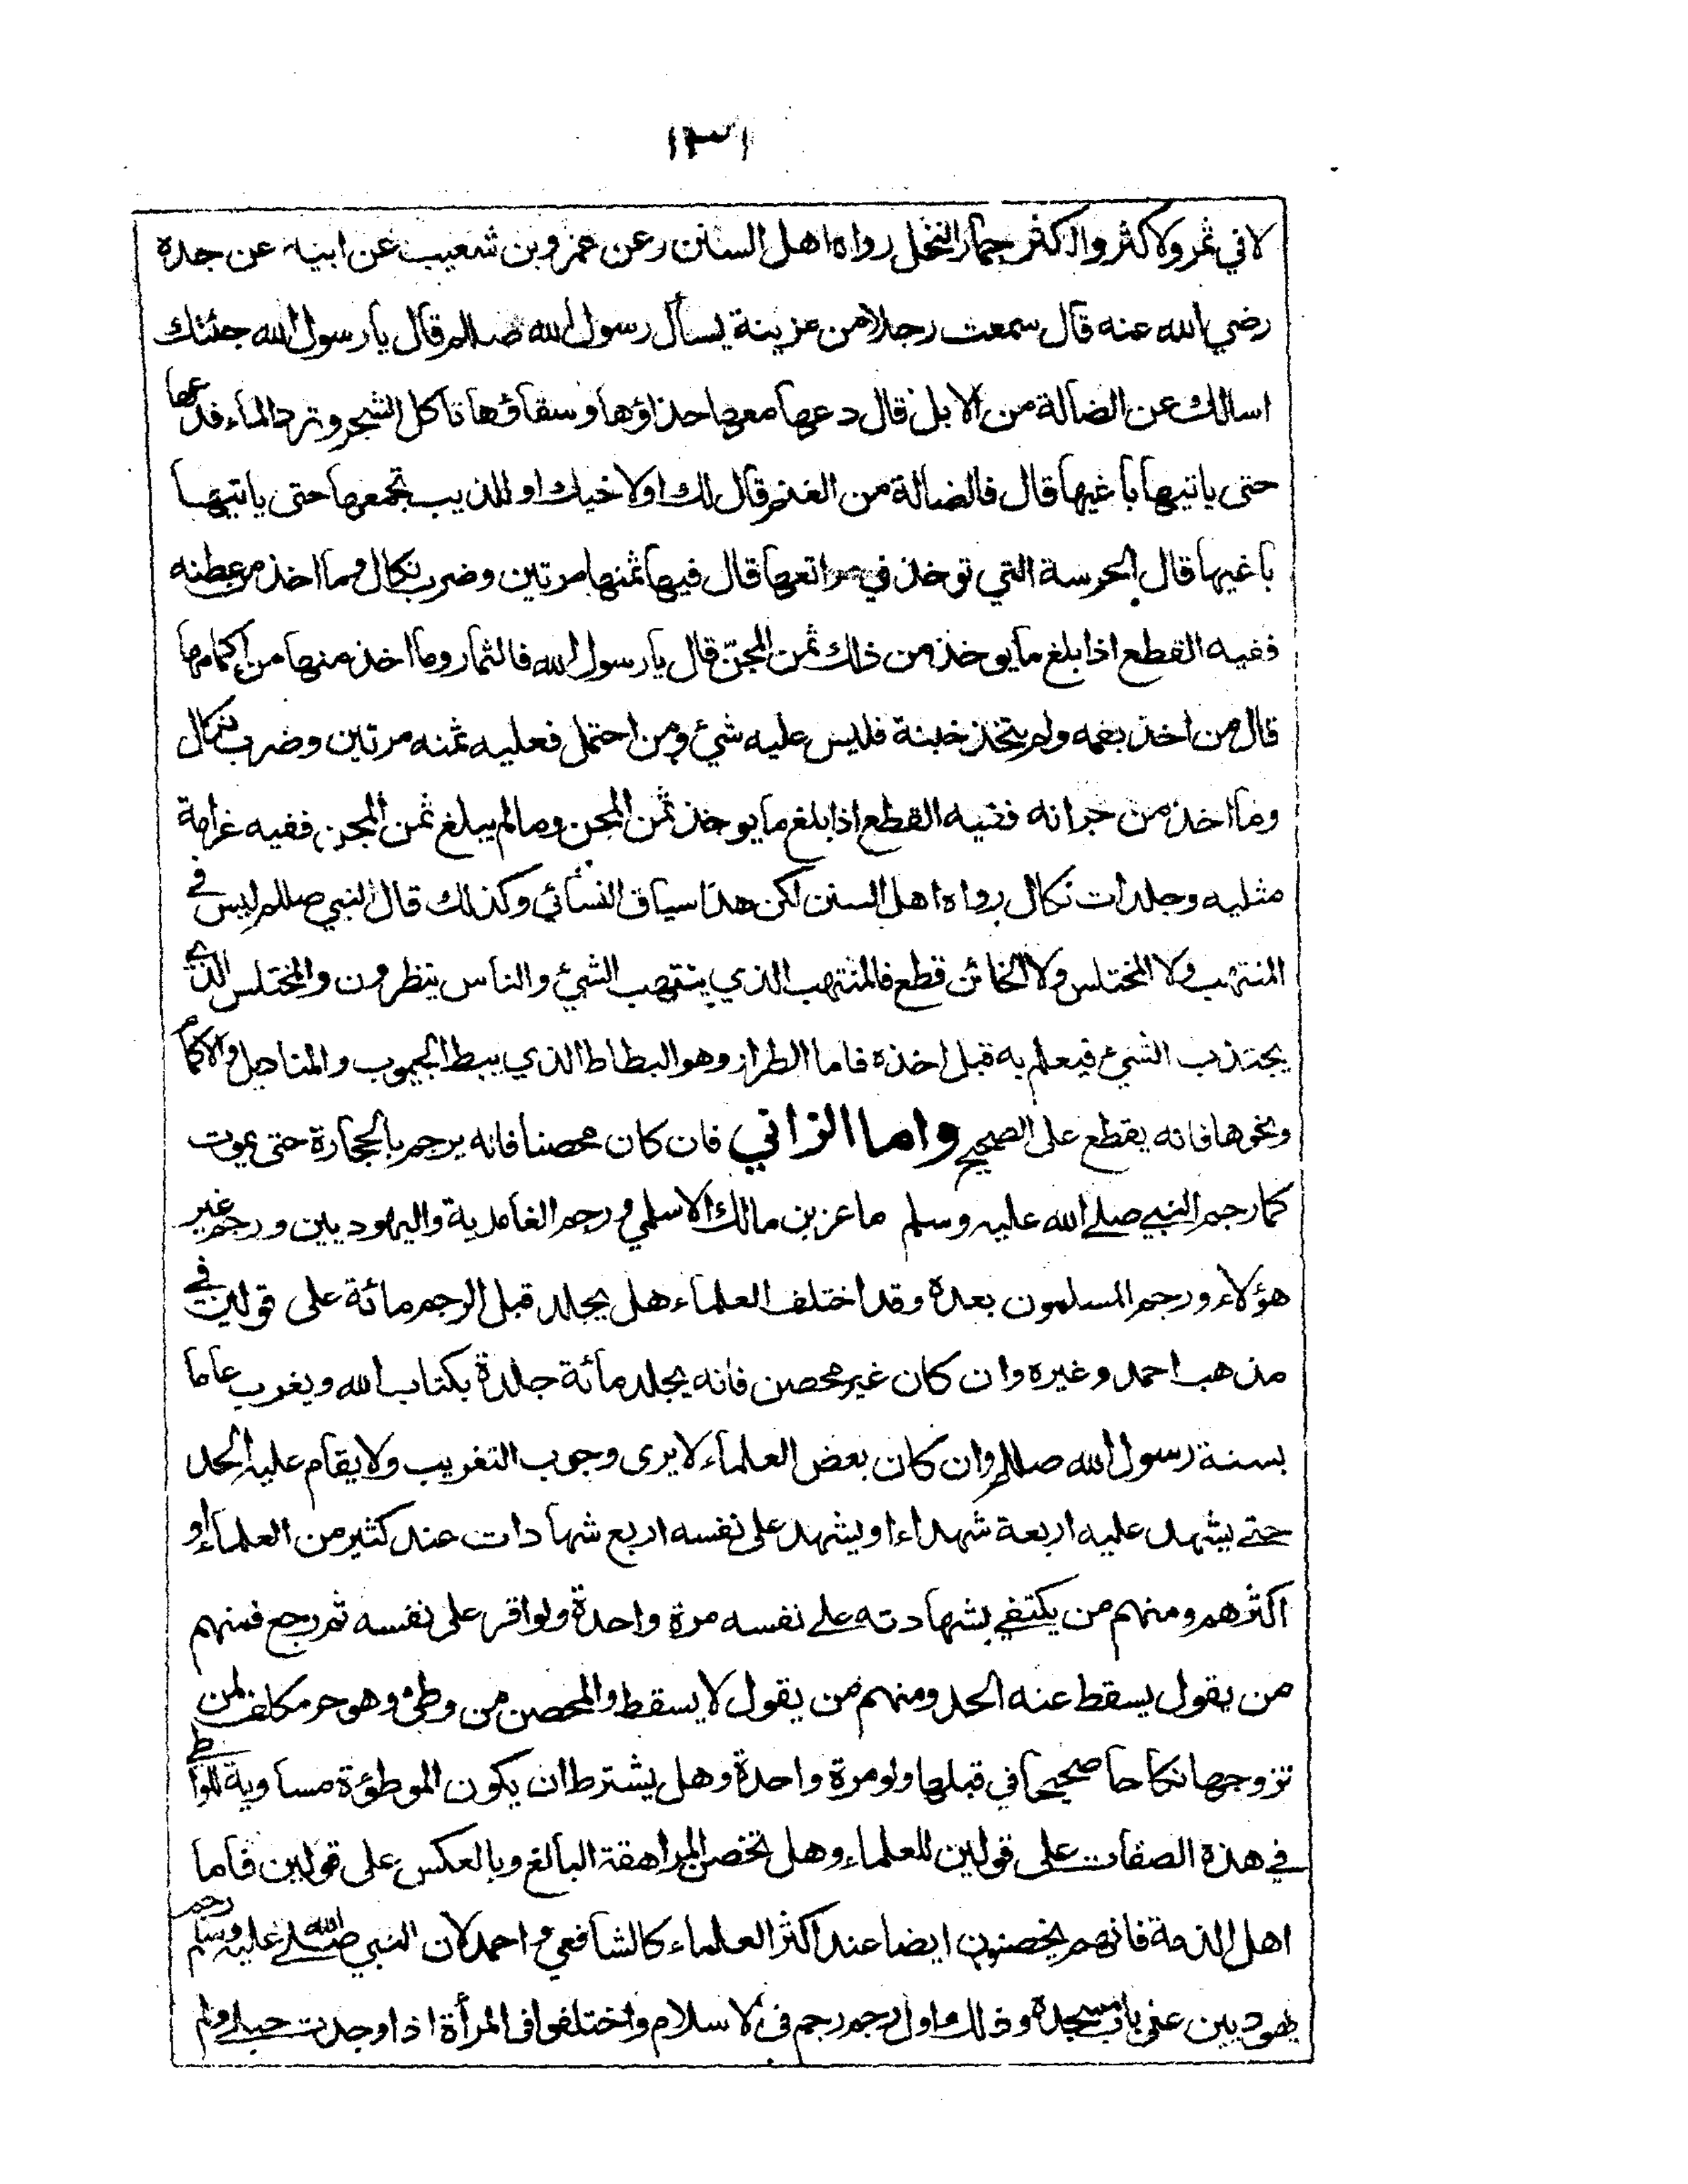 ١٣١
لا في ثمر ولا كثر والكثر جمار النخل رواه اهل السنن وعن عمرو بن شعيب عن ابيه عن جده
رضي الله عنه قال سمعت رجلا من مزينة يسأل رسول الله صللم قال يا رسول الله جئتك
اسالك عن الضالة من الابل قال دعها معها حذاؤها وسقاؤها تاكل الشجر وترد الماء فدعها
حتى ياتيها باغيها قال فالضالة من الغنم قال لك او لاخيك او للذيب تجمعها حتى ياتيها
باغيها قال الحرسة التي توخذ في مراتعها قال فيها ثمنها مرتين وضرب نكال وما اخذ من عطنه
ففيه القطع اذا بلغ ما يوخذ من ذلك ثمن المجن قال يا رسول الله فالثمار وما اخذ منها من اكمامها
قال من اخذ بفمه ولم يتخذ خبنة فليس عليه شئ ومن احتمل فعليه ثمنه مرتين وضرب نكال
وما اخذ من جرانه ففيه القطع اذا بلغ ما يوخذ ثمن المجن وما لم يبلغ ثمن المجن ففيه غرامة
مثليه وجلدات نكال رواه اهل السنن لكن هذا سياق النسائي وكذلك قال النبي صللم ليس في
المنتهب ولا المختلس ولا الخائن قطع فالمنتهب الذي ينتهب الشئ والناس ينظرون والمختلس الذي
يجتذب الشئ فيعلم به قبل اخذه فاما الطرار وهو البطاط الذي يبط الجيوب والمناديل والاكمام
ونحوها فانه يقطع على الصحيح واما الزاني فان كان محصنا فانه يرجم بالحجارة حتى يموت
كما رجم النبي صلى الله عليه وسلم ماعز بن مالك الاسلمي ورجم الغامدية واليهوديين ورجم غير
هؤلاء ورجم المسلمون بعده وقد اختلف العلماء هل يجلد قبل الرجم مائة على قولين في
مذهب احمد وغيره وان كان غير محصن فانه يجلد مائة جلدة بكتاب الله ويغرب عاما
بسنة رسول الله صللم وان كان بعض العلماء لا يرى وجوب التغريب ولا يقام عليه الحد
حتى يشهد عليه اربعة شهداء او يشهد على نفسه اربع شهادات عند كثير من العلماء او
اكثرهم ومنهم من يكتفي بشهادته على نفسه مرة واحدة ولو اقر على نفسه ثم رجع فمنهم
من يقول يسقط عنه الحد ومنهم من يقول لا يسقط والمحصن من وطئ وهو حر مكلف لمن
تزوجها نكاحا صحيحا في قبلها ولو مرة واحدة وهل يشترط ان يكون الموطؤة مساوية للواطي
في هذه الصفات على قولين للعلماء وهل تحصن المراهقة البالغ وبالعكس على قولين فاما
اهل الذمة فانهم يحصنون ايضا عند اكثر العلماء كالشافعي واحمد لان النبي صلى الله عليه وسلم رجم
يهوديين عند باب مسجده وذلك اول رجم رجم في الاسلام واختلفوا في المرأة اذا وجدت حبلى ولم